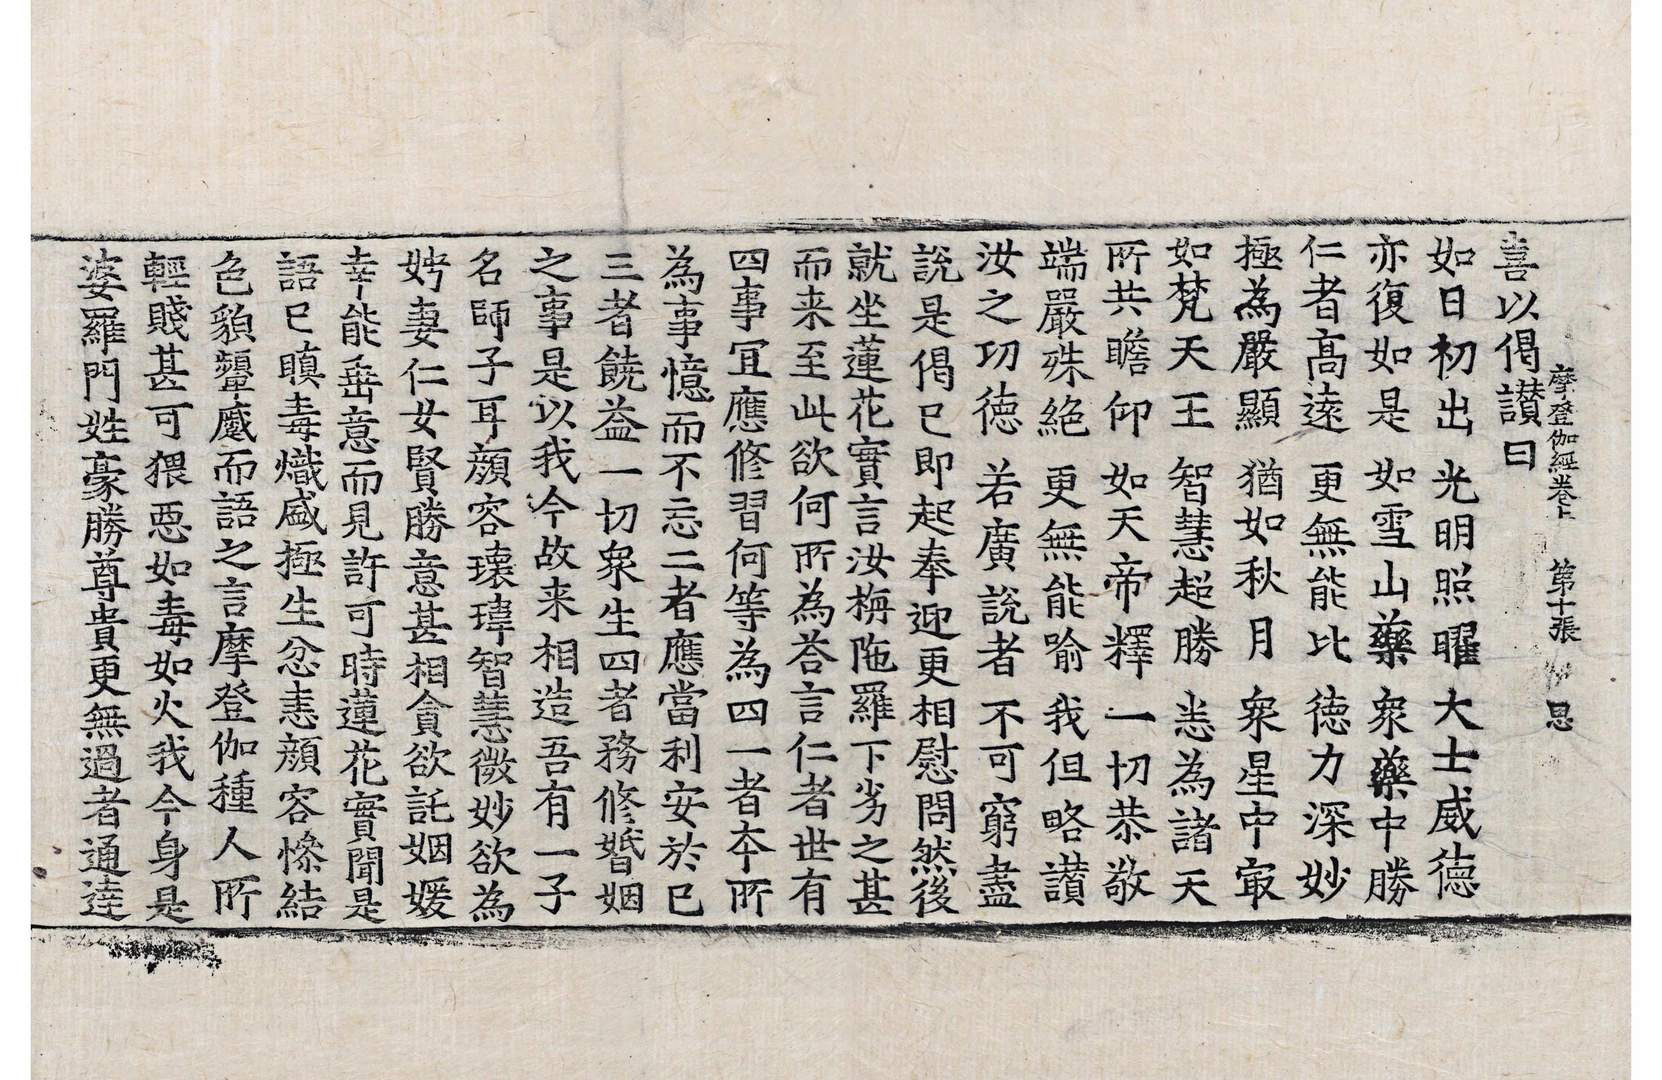 摩登伽經卷上　第十張　思
喜以偈讃曰
如日初出　光明照曜　大士威德
亦復如是　如雪山藥　衆藥中勝
仁者高遠　更無能比　德力深妙
極為嚴顯　猶如秋月　衆星中㝡
如梵天王　智慧超勝　恙為諸天
所共瞻仰　如天帝釋　一切恭敬
端嚴殊絶　更無能喻　我但略讃
汝之功德　若廣說者　不可窮盡
說是偈已即起奉迎更相慰問然後
就坐蓮花實言汝栴陁羅下劣之甚
而来至此欲何所為荅言仁者世有
四事冝應修習何等為四一者本所
為事憶而不忘二者應當利安於已
三者饒益一切衆生四者務修婚姻
之事是以我今故来相造吾有一子
名師子耳顔容瓌瑋智慧微妙欲為
娉妻仁女賢勝意甚相貪欲託姻媛
幸能垂意而見許可時蓮花實聞是
語已瞋毒熾盛極生忿恚顔容慘結
色貌顰蹙而語之言摩登伽種人所
輕賤甚可猥惡如毒如火我今身是
婆羅門姓豪勝尊貴更無過者通達